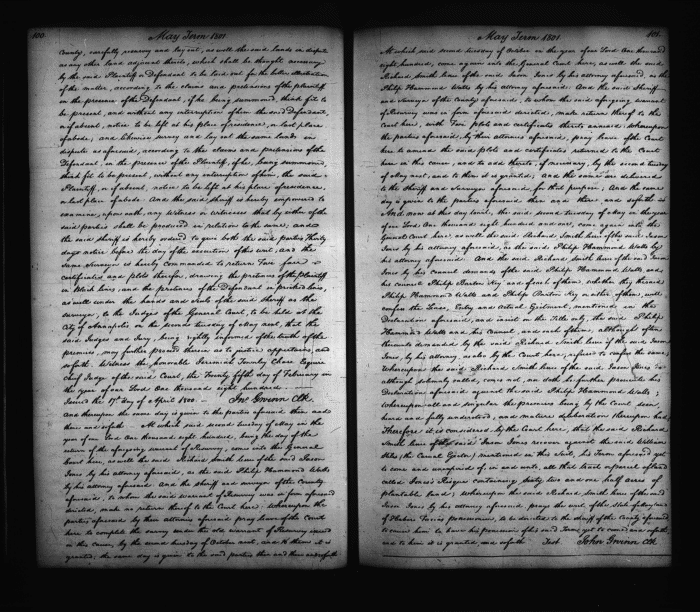 400
May Term 1801
County, carefully resurvey and lay out, as well the said lands in dispute
as any other land adjacent thereto, which shall be thought necessary
by the said Plaintiff or Defendant to be laid out for the better illustration
of the matter, according to the claims and pretensions of the plaintiff
in the presence of the Defendant, if he being summoned, think fit to
be present, and without any interruption of him the said Defendant,
or if absent, notice to be left at his place of residence, or last place
of abode; and likewise survey and lay out the same lands in
dispute as aforesaid, according to the claims and pretensions of the
Defendant, in the presence of the Plaintiff, if he, being summoned,
think fit to be present, without any interruption of him, the said
Plaintiff, or if absent, notice to be left at his place of residence,
or last place of abode. And the said sheriff is hereby empowered to
examine, upon oath, any Witness or witnesses that by either of the
said parties shall be produced in relation to the same; and
the said sheriff is hereby ordered to give both the said parties Thirty
days notice before the day of the execution of this writ, and the
same Surveyor is hereby commanded to return Four fair
certificates and plots thereof, drawing the pretensions of the Plaintiff
in black lines, and the pretensions of the Defendant in pricked lines,
as well under the hands and seals of the said sheriff as the
surveyor, to the Judges of the General Court, to be held at the
City of Annapolis on the second tuesday of May next, that the
said Judges and Jury, being rightly informed of the truth of the
premises, may further proceed therein as to justice appertains, and
so forth. Witness the honorable Jeremiah Townley Chase Esquire
Chief Judge of the said Court, the Twenty fifth day of February in
the year of our Lord One thousand eight hundred
Issued the 17th day of April 1800. Jno Gwinn Clk
And thereupon the same day is given to the parties aforesaid then and
there and so forth. At which said second tuesday of May in the
year of our Lord One thousand eight hundred, being the day of the
return of the aforegoing warrant of Resurvey, comes into the General
Court here, as well the said Richard Smith lessee of the said Jason
Jones by his attorney aforesaid, as the said Philip Hammond Watts
by his attorney aforesaid. And the sheriff and surveyor of the county
aforesaid, to whom the said warrant of Resurvey was in form aforesaid
directed, make no return thereof to the Court here. Whereupon the
parties aforesaid by their attornies aforesaid pray leave of the Court
here to complete the survey under the old warrant of Resurvey issued
in this cause, by the second tuesday of October next, and to them it is
granted; the same day is given to the said parties then and there and so forth
May Term 1801
401
At which said second tuesday of October in the year of our Lord One thousand
eight hundred, come again into the General Court here, as well the said
Richard Smith lessee of the said Jason Jones by his attorney aforesaid, as the
Philip Hammond Watts by his attorney aforesaid. And the said Sheriff
and Surveyor of the County aforesaid, to whom the said aforegoing warrant
of Resurvey was in form aforesaid directed, make return thereof to the
Court here, with Four plots and certificates thereto annexed. Whereupon
the parties aforesaid, by their attornies aforesaid, pray leave of the Court
here to amend the said plots and certificates returned to the Court
here in this cause, and to add thereto, if necessary, by the second tuesday
of May next, and to them it is granted; And the same are delivered
to the Sheriff and Surveyor aforesaid, for that purpose; And the same
day is given to the parties aforesaid then and there and so forth
And now at this day to wit, the said second tuesday of May in the year
of our Lord One thousand eight hundred and one, come again into the
General Court here, as well the said Richard Smith lessee of the said Jason
Jones by his attorney aforesaid, as the said Philip Hammond Watts by
his attorney aforesaid. And the said Richard Smith lessee of the said Jason
Jones by his counsel demands of the said Philip Hammond Watts, and
his counsel Philip Barton Key and of each of them, whether they the said
Philip Hammond Watts and Philip Barton Key or either of them, will
confess the Lease, Entry and actual Ejectment, mentioned in the
Declaration aforesaid, and insist on the Title only, the said Philip
Hammond Watts and his counsel, and each of them, although often
times demanded by the said Richard Smith lessee of the said Jason
Jones, by his attorney, as also by the Court here, refuse to confess the same;
Whereupon the said Richard Smith lessee of the said Jason Jones
although solemnly called, comes not, nor doth he further prosecute his
Declaration aforesaid against the said Philip Hammond Watts;
Whereupon all and singular the premises being by the Court seen
heard and fully understood, and mature deliberation thereupon had
Therefore it is considered by the Court here, that the said Richard
Smith lessee of the said Jason Jones recover against the said William
Stiles, (the Casual Ejector) mentioned in this suit, his Term aforesaid yet
to come and unexpired of, in and unto, all that tract or parcel of land
called Jones's Purgue containing sixty two and one half acres of
plantable land; Whereupon the said Richard Smith lessee of the said
Jason Jones by his attorney aforesaid, prays the writ of the state of Maryland
of Habere Facias Possessionem, to be directed to the sheriff of the County aforesaid
to cause him to have his possession of his said Term yet to come, and so forth
and to him it is granted, and so forth. Test. John Gwinn Clk